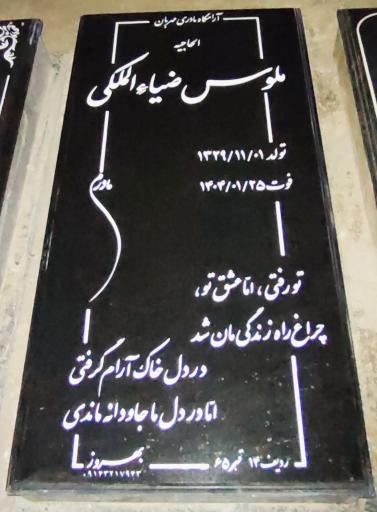 آرامگاه مادری مهربان
الحاجیه
ملوس ضیاءالملکی
تولد ۱۳۲۹/۱۱/۰۱
فوت ۱۴۰۴/۰۱/۲۵
مادرم
تو رفتی، اما عشق تو،
چراغ راه زندگی مان شد
در دل خاک آرام گرفتی
اما در دل ما جاودانه ماندی
ردیف ۱۳ قبر ۶۵
بهروز
۰۹۱۲۳۲۱۷۹۲۲